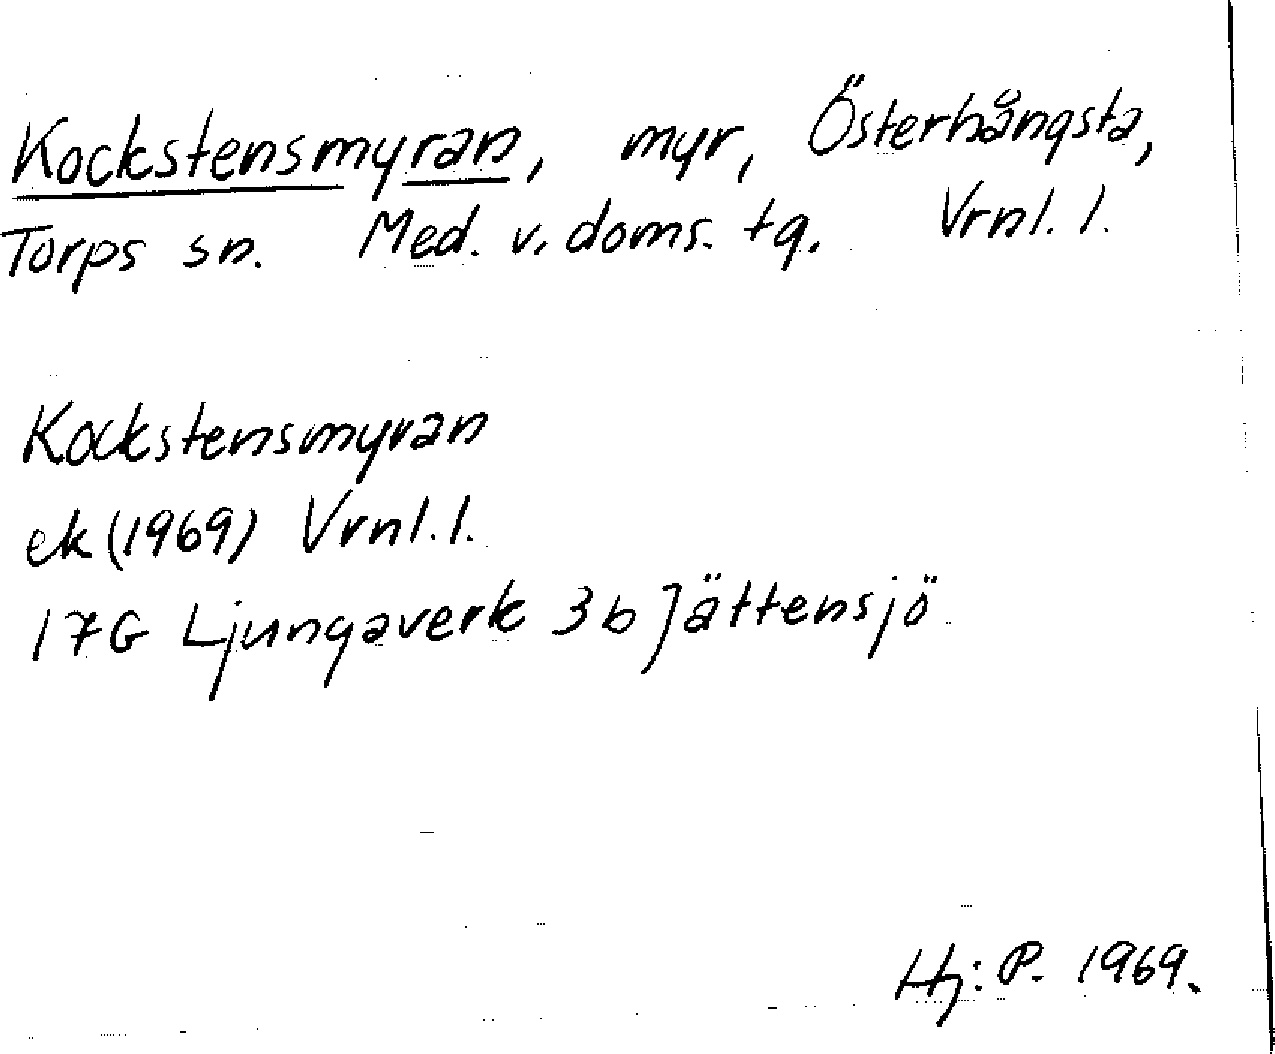 Kockstensmyran, myr, Österhångsta,
Torps sn. Med. v. doms. tg. Vrnl. l.
Kockstensmyran
ek (1969) Vrnl. l.
17G Ljungaverk 3b Jättensjö
Hj: P. 1969.